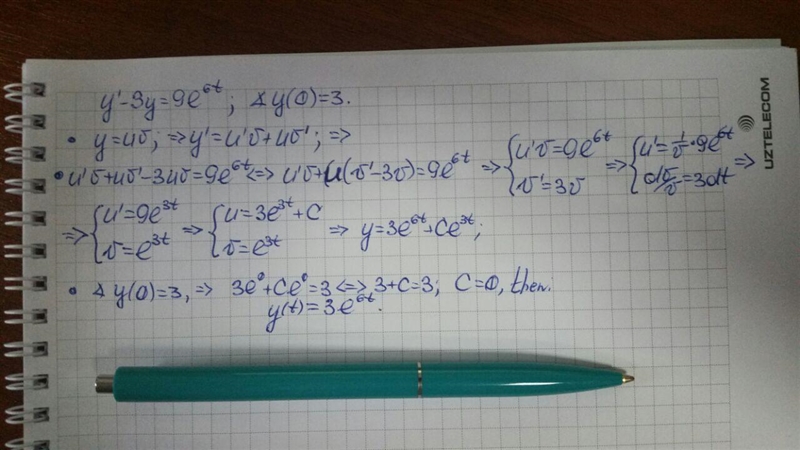 y'-3y=9e^6t; ∡y(0)=3.
• y=uv; ⇒y'=u'v+uv'; ⇒
• u'v+uv'-3uv=9e^6t ⇔ u'v+u(v'-3v)=9e^6t ⇒ { u'v=9e^6t v'=3v ⇒ { u'=1/v·9e^6t dv/v=3dt ⇒
⇒ { u'=9e^3t v=e^3t ⇒ { u=3e^3t+C v=e^3t ⇒ y=3e^6t+Ce^3t;
• ∡y(0)=3, ⇒ 3e^0+Ce^0=3 ⇔ 3+C=3; C=0, then:
y(t)=3e^6t.
UZTELECOM